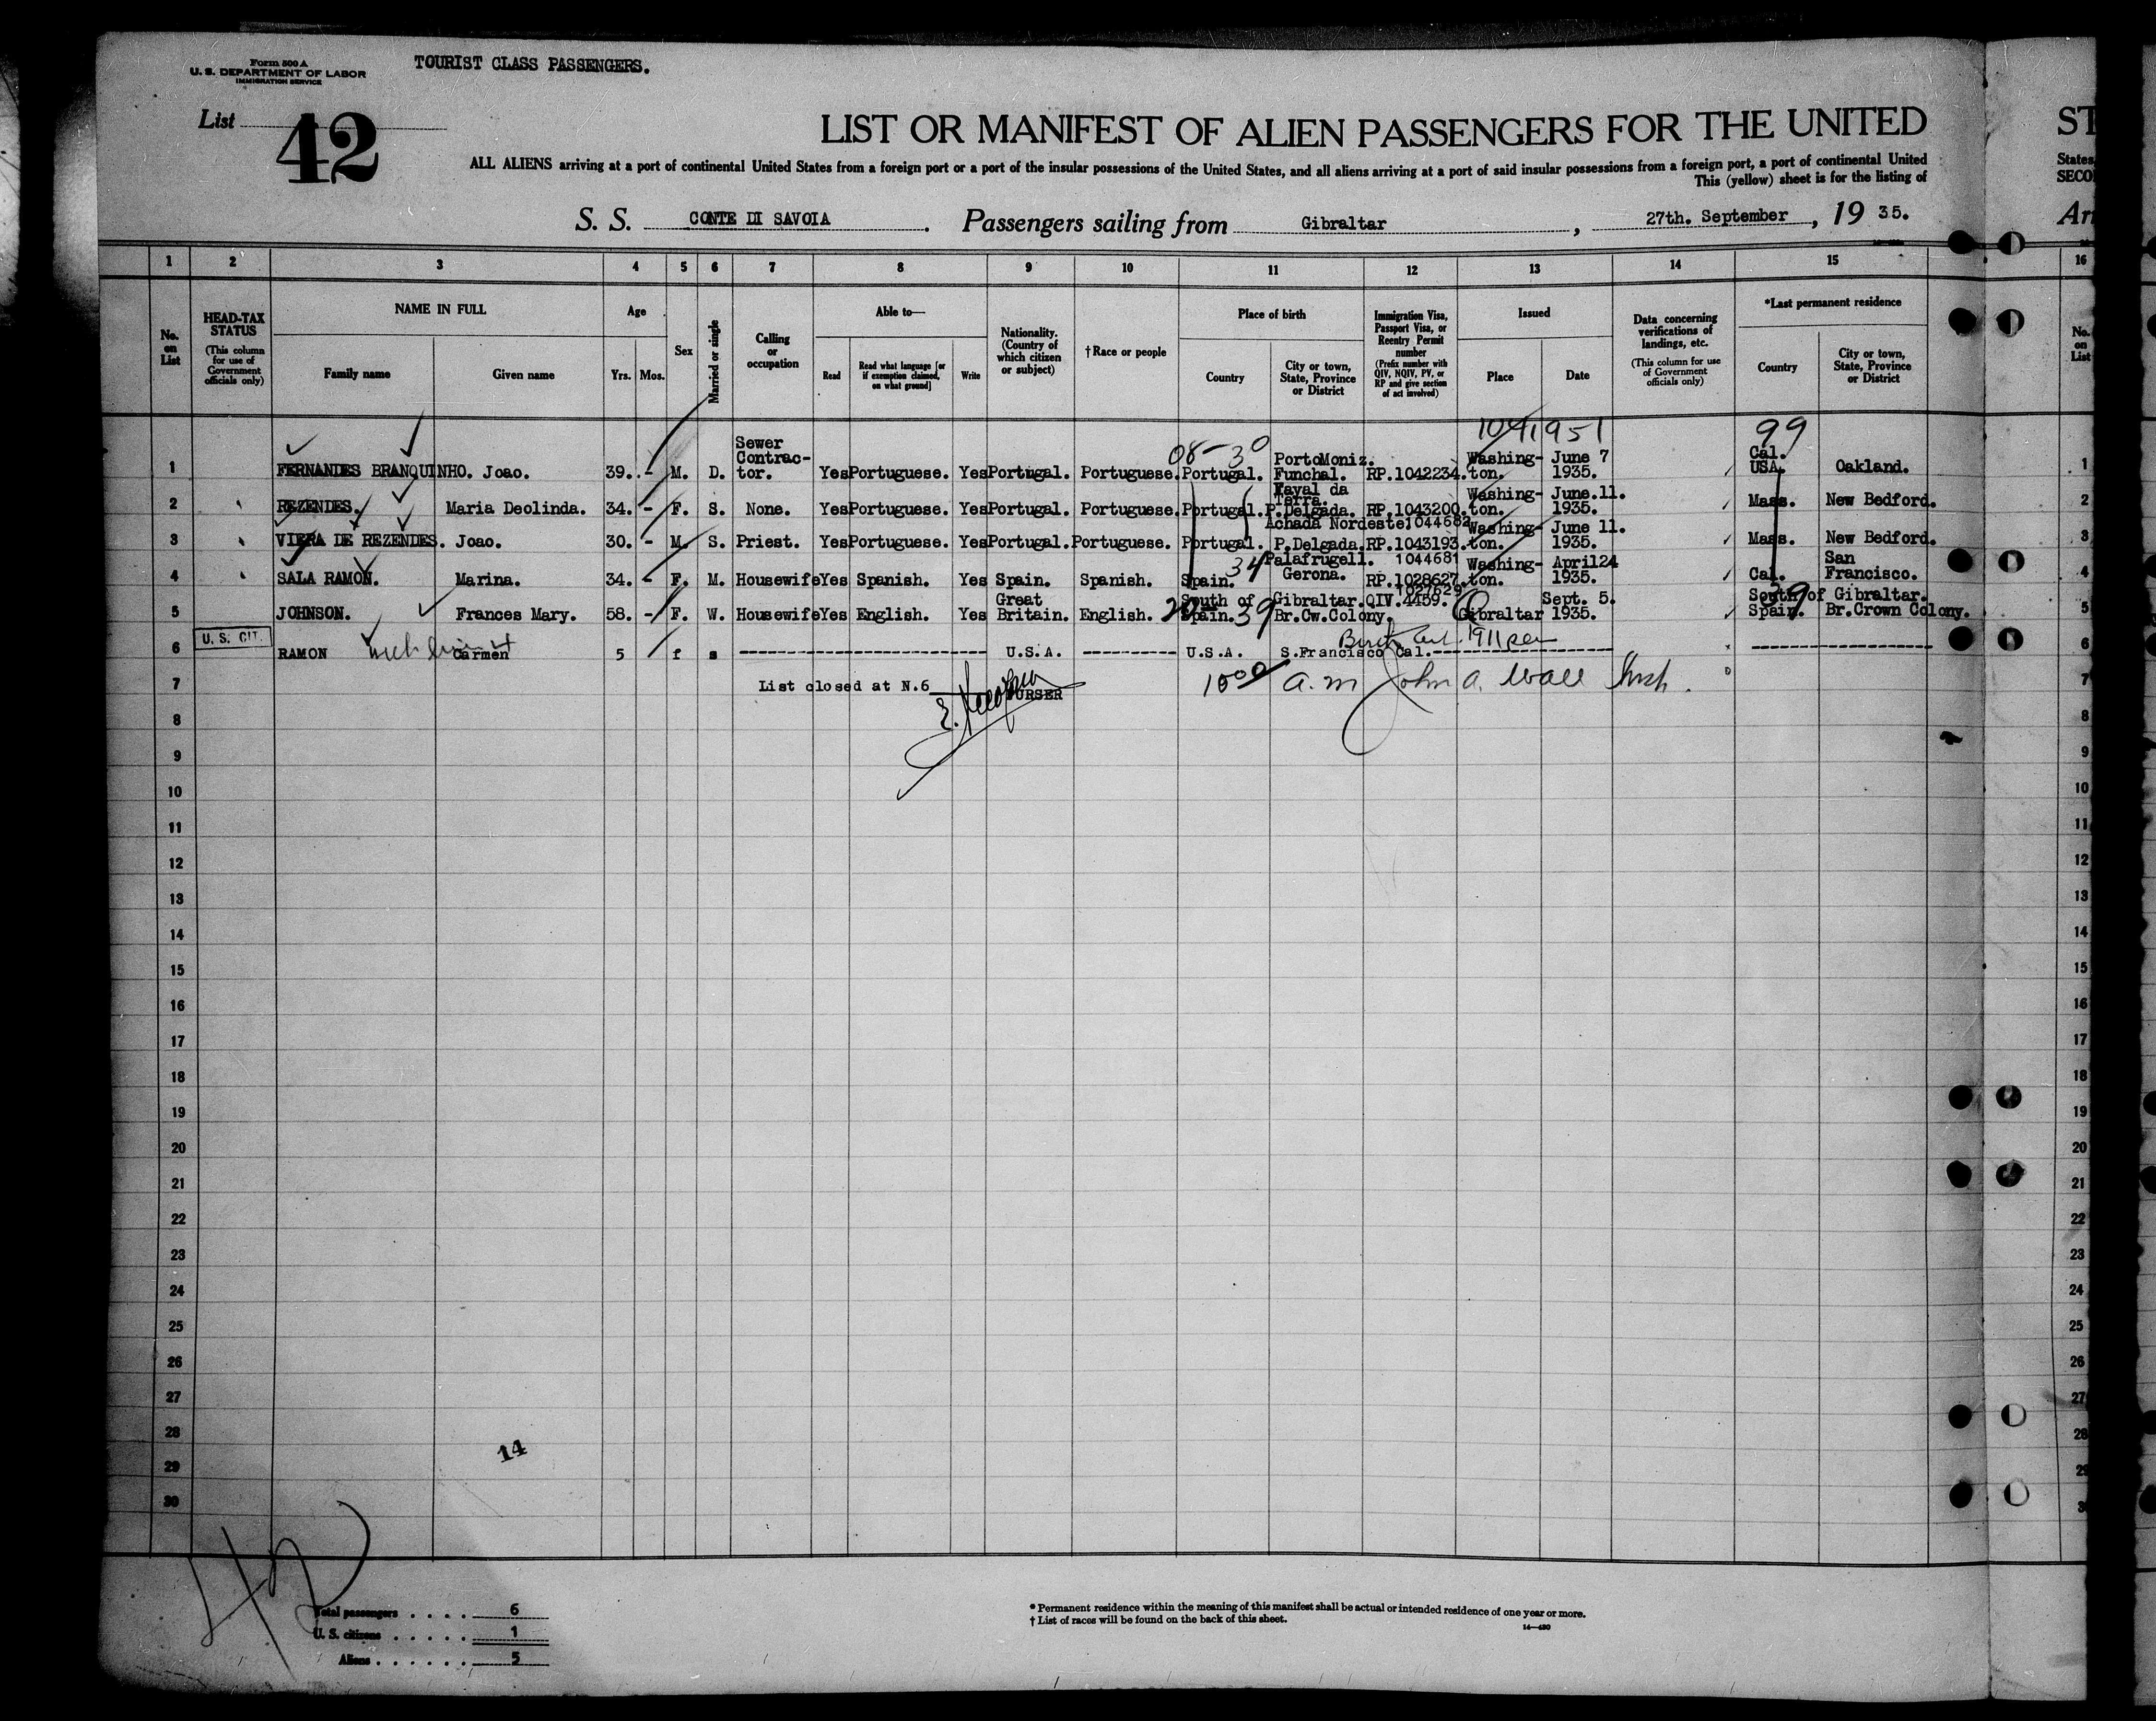 Form 500 A
U. S. DEPARTMENT OF LABOR
IMMIGRATION SERVICE
TOURIST CLASS PASSENGERS.
List 42
LIST OR MANIFEST OF ALIEN PASSENGERS FOR THE UNITED ST
ALL ALIENS arriving at a port of continental United States from a foreign port or a port of the insular possessions of the United States, and all aliens arriving at a port of said insular possessions from a foreign port, a port of continental United States,
This (yellow) sheet is for the listing of SECO
S. S. CONTE DI SAVOIA. Passengers sailing from Gibraltar, 27th. September, 19 35. Arr
1 2 3 4 5 6 7 8 9 10 11 12 13 14 15 16
No. on List
HEAD-TAX STATUS
(This column for use of Government officials only)
NAME IN FULL
Family name
Given name
Age
Yrs. Mos.
Sex
Married or single
Calling or occupation
Able to—
Read
Read what language [or if exemption claimed, on what ground]
Write
Nationality. (Country of which citizen or subject)
† Race or people
Place of birth
Country
City or town, State, Province or District
Immigration Visa, Passport Visa, or Reentry Permit number
(Prefix number with QIV, NQIV, PV, or RP and give section of act involved)
Issued
Place
Date
Data concerning verifications of landings, etc.
(This column for use of Government officials only)
*Last permanent residence
Country
City or town, State, Province or District
No. on List
1041951
99
08-30
1 FERNANDES BRANQUINHO. Joao. 39. - M. D. Sewer Contrac- tor. Yes Portuguese. Yes Portugal. Portuguese. Portugal. PortoMoniz. Funchal. RP.1042234. Washing- ton. June 7 1935. Cal. USA. Oakland. 1
2 REZENDES. Maria Deolinda. 34. - F. S. None. Yes Portuguese. Yes Portugal. Portuguese. Portugal. Fayal da Terra. P.Delgada. RP.1043200. Washing- ton. June.11. 1935. Mass. New Bedford. 2
3 VIERA DE REZENDES. Joao. 30. - M. S. Priest. Yes Portuguese. Yes Portugal. Portuguese. Portugal. Achada Nordeste P.Delgada. 1044682 RP.1043193. Washing- ton. June 11. 1935. Mass. New Bedford. 3
4 SALA RAMON. Marina. 34. - F. M. Housewife Yes Spanish. Yes Spain. Spanish. Spain. 34 Palafrugell. Gerona. 1044681 RP.1028627. Washing- ton. April24 1935. Cal. San Francisco. 4
1027629
5 JOHNSON. Frances Mary. 58. - F. W. Housewife Yes English. Yes Great Britain. English. 20 South of Spain. 39 Gibraltar. Br.Cw.Colony. QIV.4459. Gibraltar Sept. 5. 1935. South of Spain. 9 Gibraltar. Br.Crown Colony. 5
U. S. CIT.
6 RAMON Carmen 5 f s U.S.A. U.S.A. S.Francisco Cal. 6
7 List closed at N.6 PURSER 10 00 a.m John A. Wall Insp. 7
8 8
9 9
10 10
11 11
12 12
13 13
14 14
15 15
16 16
17 17
18 18
19 19
20 20
21 21
22 22
23 23
24 24
25 25
26 26
27 27
28 28
14
29 29
30 30
Total passengers . . . . 6
U. S. citizens . . . . . 1
Aliens . . . . . . 5
* Permanent residence within the meaning of this manifest shall be actual or intended residence of one year or more.
† List of races will be found on the back of this sheet.
14—430